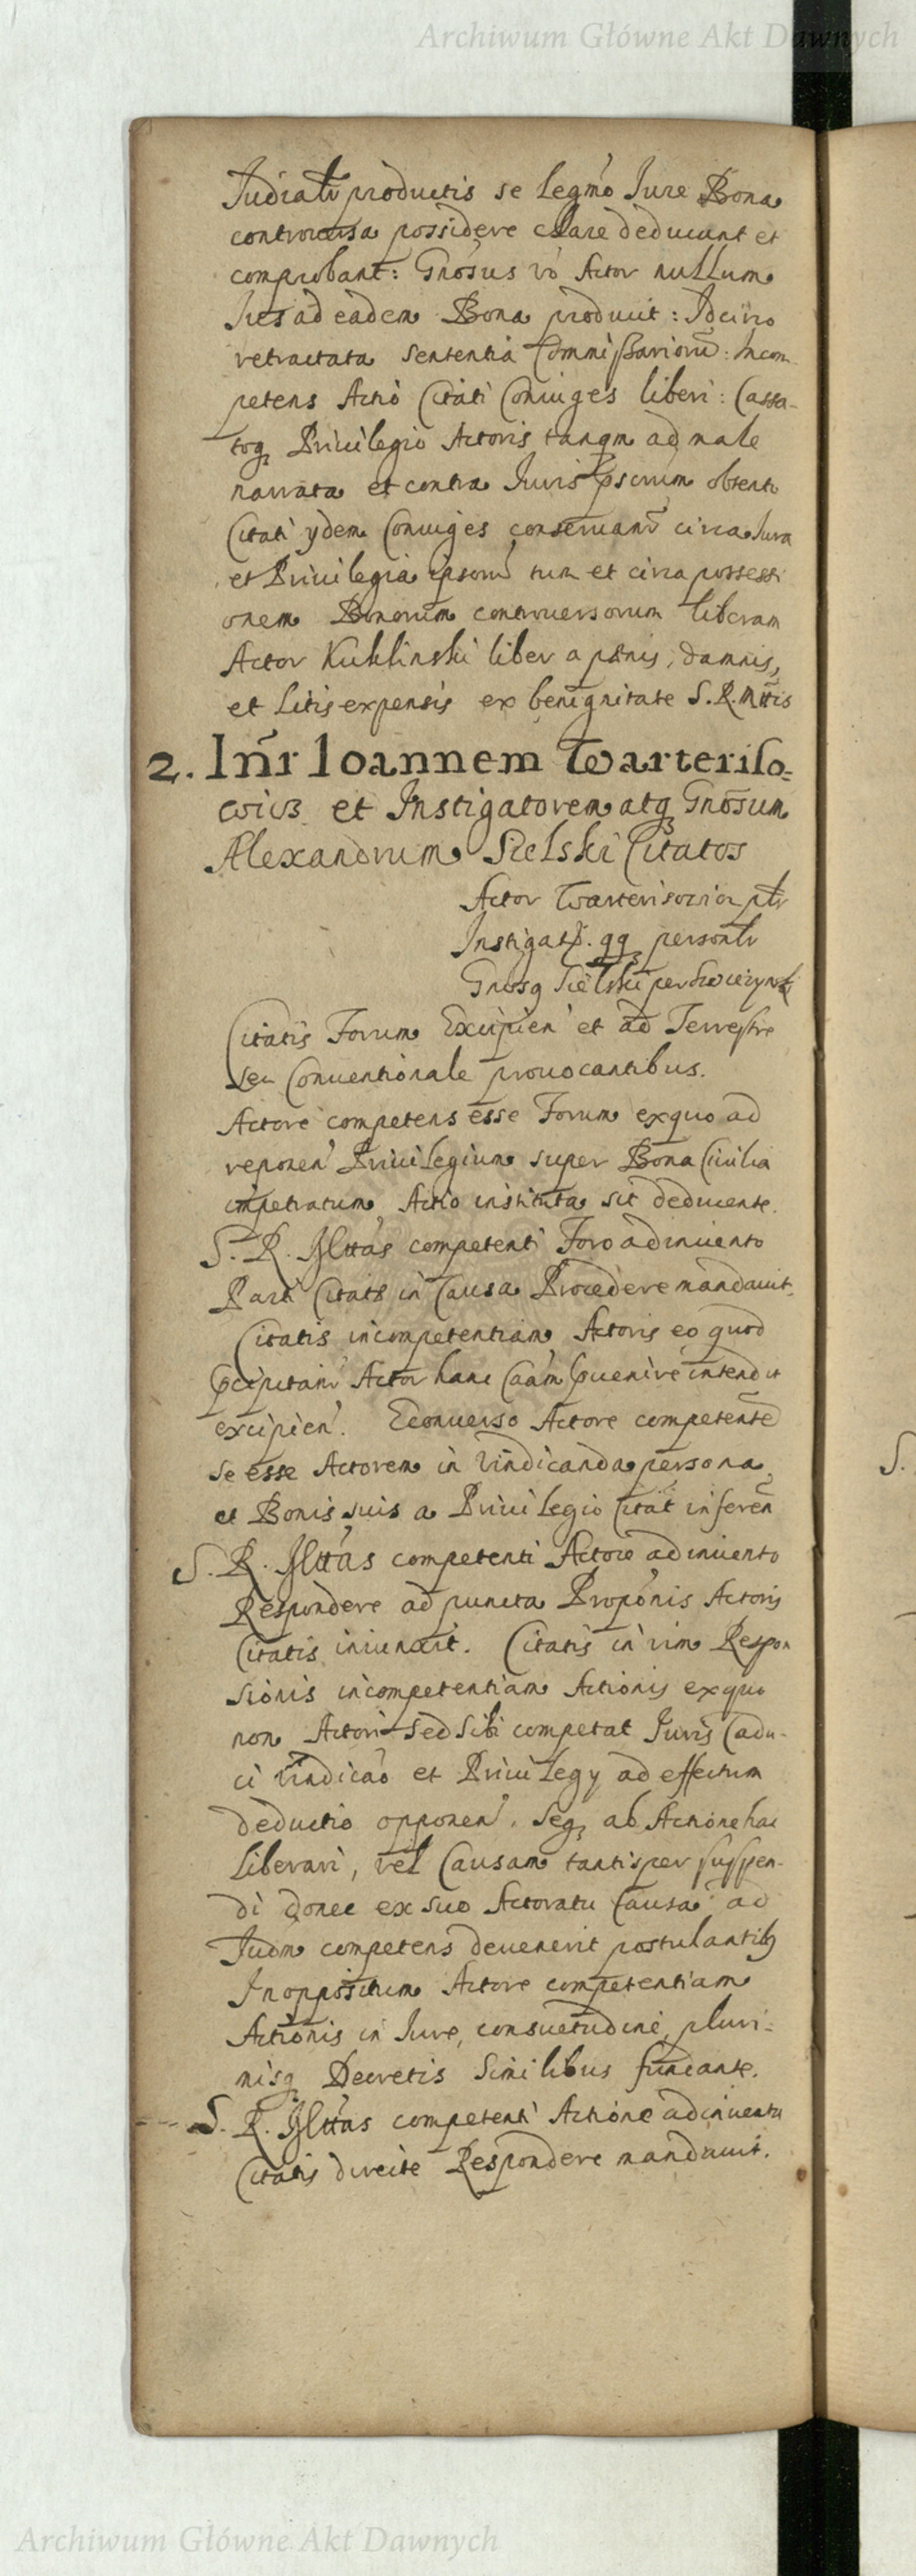 Archiwum Główne Akt Dawnych
Judialr productis se legmo Jure Bona
controuersa possidere clare deducunt et
comprobant: Gnosus vo Actor nullum
Jus ad eadem Bona produxit: Idcirco
retractata sententia Commissarioru: Incom
petens Actio Citati Coniuges liberi: Cassa-
toq Priuilegio Actoris tanqm ad male
narrata et contra Juris pscrum obtento
Citati ydem Coniuges conseruanr circa Jura
et Priuilegia ipsoru tum et circa possessi
onem Bonorum controuersorum liberam
Actor Kuklinski liber a pænis, damnis,
et litis expensis ex benignitate S. R. Mttis
2. Inr Ioannem Warteriso-
wicz et Instigatorem atq Gnosum
Alexandrum Sielski Citatos
Actor Warterisowicz plr
Instigat. qq personlr
Gnosq Sielski per
Citatis Forum Excipien et ad Terrestre
seu Conuentionale prouocantibus.
Actore competens esse Forum exquo ad
reponen Priuilegium super Bona Ciuilia
impetratum Actio instituta sit deducente.
S. R. Mttas competenti Foro adinuento
Parti Citatæ in Causa Procedere mandauit.
Citatis incompetentiam Actoris eo quod
pcipitanr Actor hanc Caam puenire intendit
excipien. Econuerso Actore competente
se esse Actorem in vindicanda persona
et Bonis suis a Priuilegio Citat inferen
S. R. Mttas competenti Actore adinuento
Respondere ad puncta Proponis Actoris
Citatis iniunxit. Citatis in vim Respon
sionis incompetentiam Actionis exquo
non Actori sed sibi competat Juris Cadu-
ci vindicao et Priuilegy ad effectum
deductio opponen. seq ab Actione hac
liberari, vel Causam tantisper suspen-
di donec ex suo Actoratu Causa ad
Judm competens deuenerit postulantib
In oppositum Actore competentiam
Actionis in Jure, consuetudine, pluri-
misq Decretis Similibus fundante.
S. R. Mttas competenti Actione adinuenta
Citatis directe Respondere mandauit.
S.
Archiwum Główne Akt Dawnych